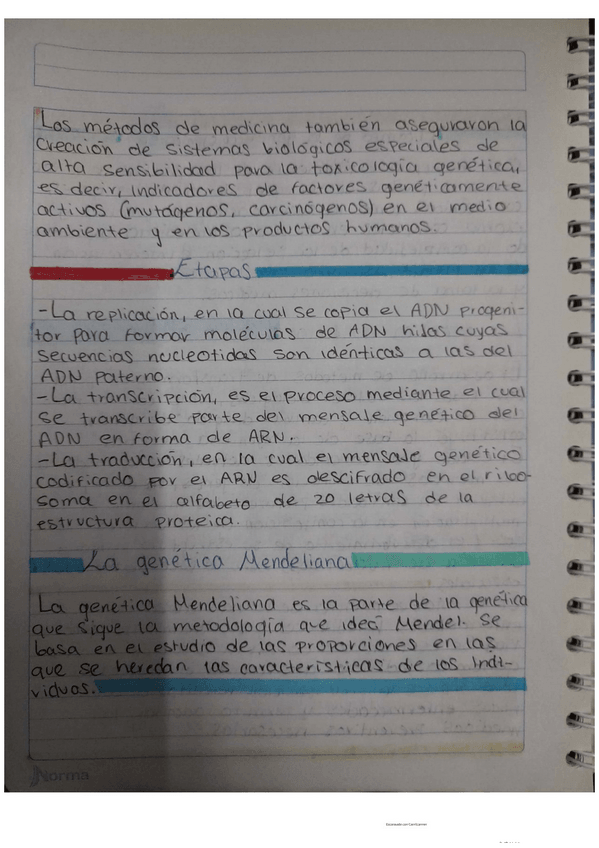 Los métodos de medicina también aseguraron la
creación de sistemas biológicos especiales de
alta sensibilidad para la toxicología genética,
es decir, indicadores de factores genéticamente
activos (mutágenos, carcinógenos) en el medio
ambiente y en los productos humanos.
Etapas
-La replicación, en la cual se copia el ADN progeni-
tor para formar moléculas de ADN hijas cuyas
secuencias nucleotidas son idénticas a las del
ADN paterno.
-La transcripción, es el proceso mediante el cual
se transcribe parte del mensaje genético del
ADN en forma de ARN.
-La traducción, en la cual el mensaje genético
codificado por el ARN es descifrado en el ribo-
soma en el alfabeto de 20 letras de la
estructura proteica.
La genética Mendeliana
La genética Mendeliana es la parte de la genética
que sigue la metodología que ideó Mendel. Se
basa en el estudio de las proporciones en las
que se heredan las características de los indi-
viduos.
Norma
Escaneado con CamScanner